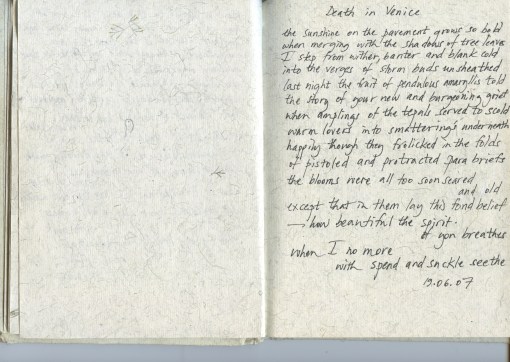 Death in Venice
the sunshine on the pavement grows so bold
when merging with the shadows of tree leaves
I step from wither, banter and blank cold
into the verges of storm buds unsheathed
last night the fruit of pendulous amaryllis told
the story of your new and burgeoning grief
when amplings of the tepals served to scold
warm lovers into smattering's underneath
happing though they frolicked in the folds
of pistoled and protracted para briefs
the blooms were all too soon seared
and old
except that in them lay this fond belief
— how beautiful the spirit.
of yon breathes
when I no more
with spend and suckle seethe
19.06.07